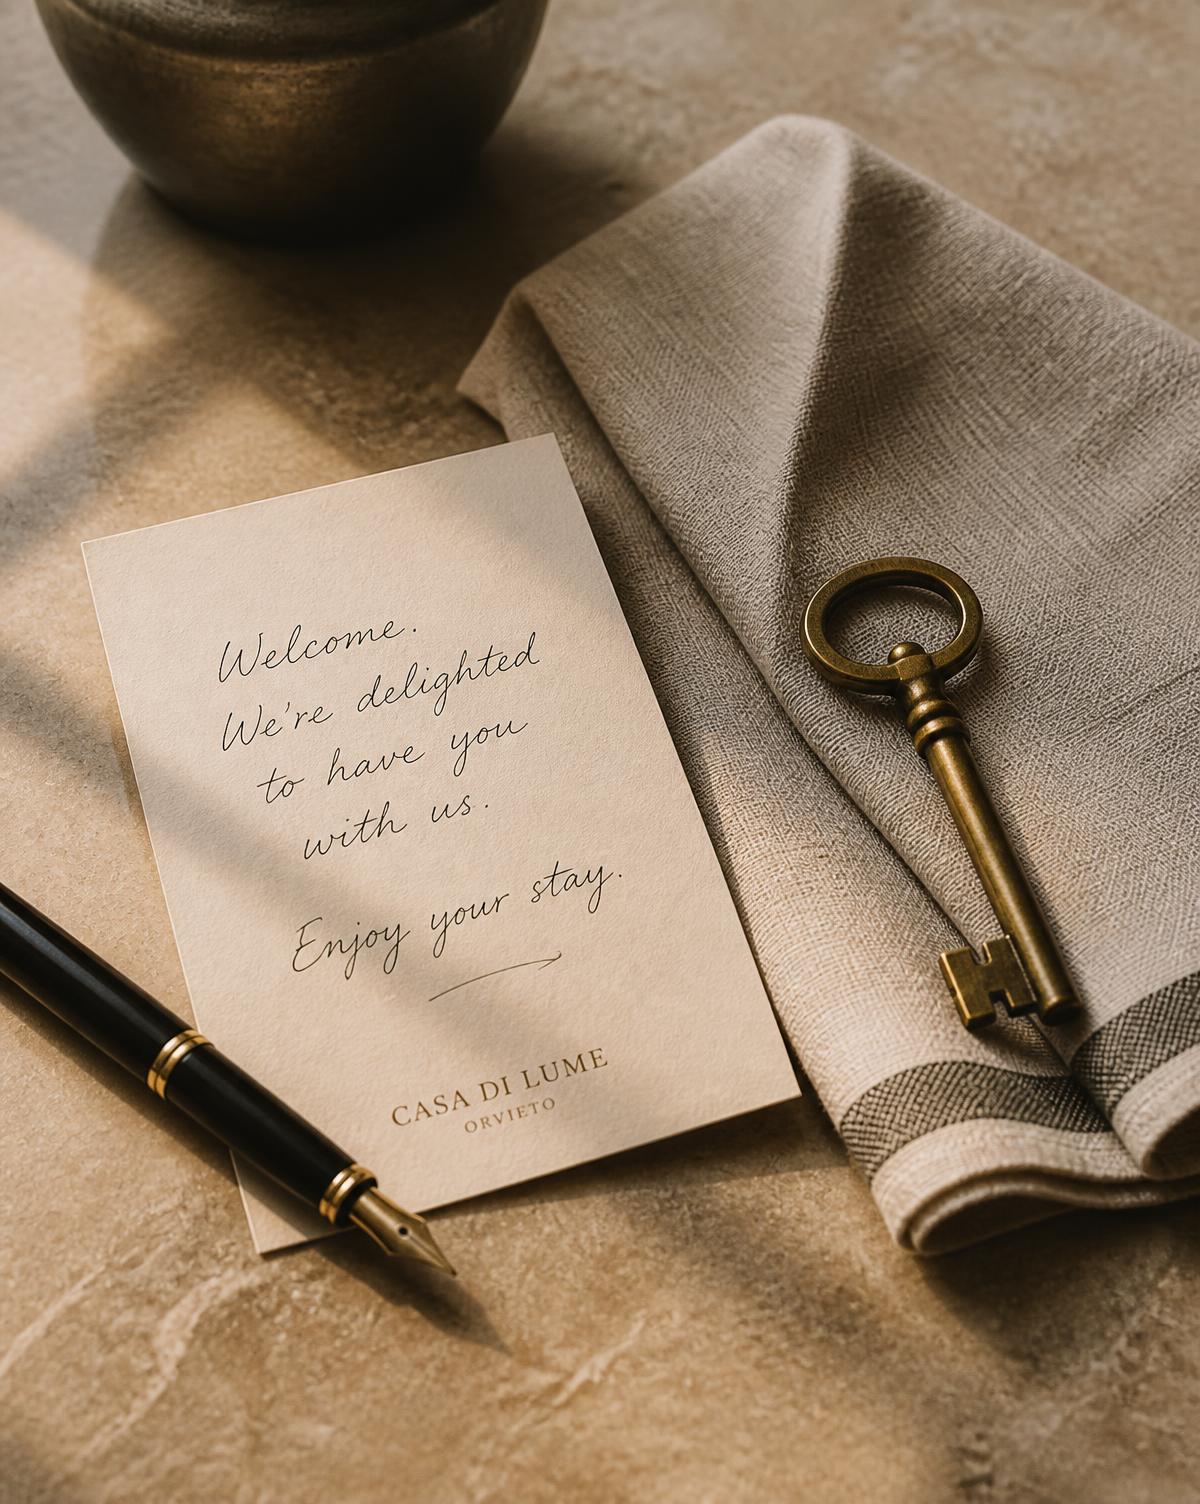 Welcome.
We're delighted
to have you
with us.
Enjoy your stay.
CASA DI LUME
ORVIETO